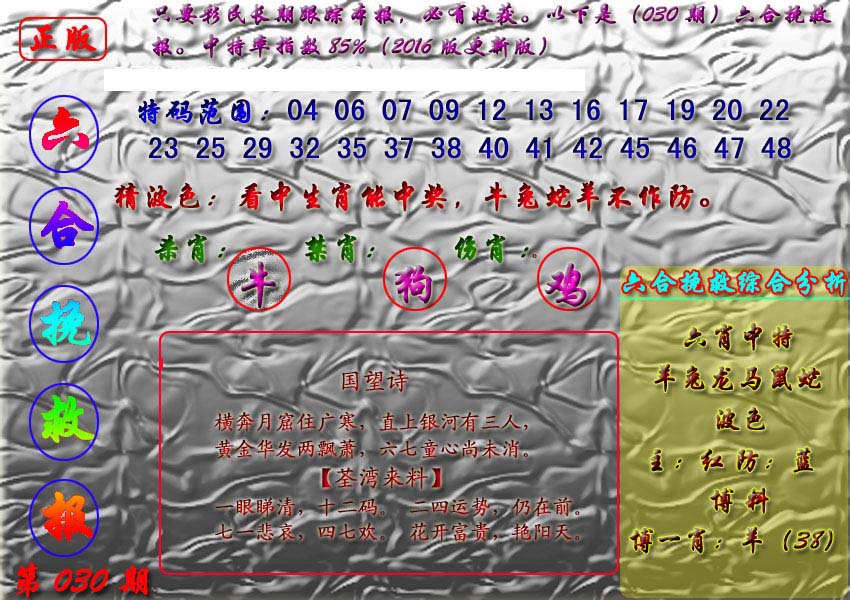 正版
只要彩民长期跟踪本报，必有收获。以下是（030期）六合挽救
报。中特率指数85%（2016版更新版）
六
合
挽
救
报
第030期
特码范围：04 06 07 09 12 13 16 17 19 20 22
23 25 29 32 35 37 38 40 41 42 45 46 47 48
猜波色：看中生肖能中奖，牛兔蛇羊不作防。
杀肖：牛 禁肖：狗 伤肖：鸡
国望诗
横奔月窟住广寒，直上银河有三人，
黄金华发两飘萧，六七童心尚未消。
【荃湾来料】
一眼睇清，十二码。 二四运势，仍在前。
七一悲哀，四七欢。 花开富贵，艳阳天。
六合挽救综合分析
六肖中特
羊兔龙马鼠蛇
波色
主：红防：蓝
博料
博一肖：羊（38）